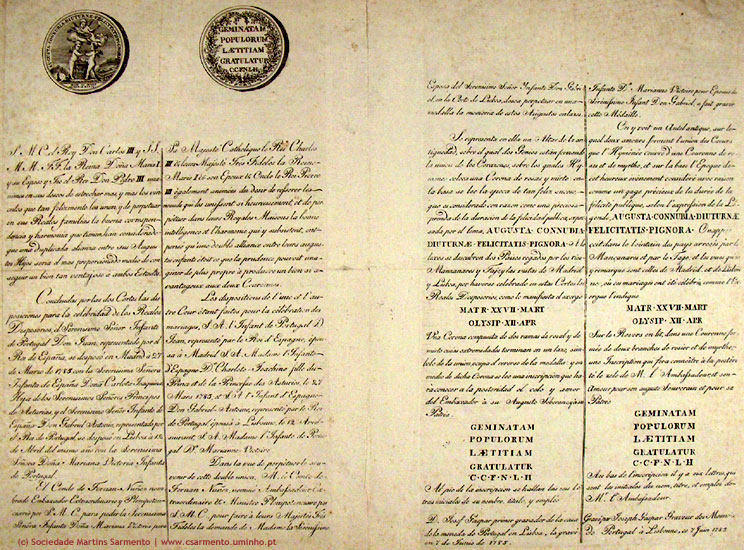 GEMINATAM
POPULORUM
LÆTITIAM
GRATULATUR
C.C.F.N.L.H.
S. M. C. el Rey Don Carlos III y S.S.
M. M. F.F. la Reina Doña Maria I
y su Esposo y Tio el Rey Don Pedro III
en sus Reales familias la buena correspon-
dencia y harmonia que
que una duplicada alianza entre sus Augus-
tos Hijos seria el mas proporcionado medio de con-
seguir un bien tan ventajoso a ambos Estados.
Concluidas por las dos Cortes las dis-
posiciones para la celebridad de los Reales
Desposorios, el Serenisimo Señor Infante
de Portugal Don Juan, representado por el
Rey de España, se desposó en Madrid a 27
de Marzo de 1785 con la Serenisima Señora
Infanta de España Doña Carlota Joaquina
Hija de los Serenisimos Señores Principes
de Asturias, y el Serenisimo Señor Infante de
España Don Gabriel Antonio, representado por
el Rey de Portugal se desposó en Lisboa a 12
de Abril del mismo año con la Serenisima
Señora Doña Mariana Victoria Infanta
de Portugal.
El Conde de Fernan Nuñez nom-
brado Embaxador Extraordinario y Plenipoten-
ciario por S. M. C. para pedir la Serenisima
Señora Infanta Doña Mariana Victoria para
Sa Majesté Catholique le Roi Charles
III et leurs Majestés Très Fideles la Reine
Marie I et son Epoux et Oncle le Roi Pierre
III également animés du desir de resserrer les
nœuds qui les unissent si heureusement, et de per-
pétuer dans leurs Royales Maisons la bonne
intelligence et l'harmonie qui y subsistent, ont
pensé qu'une double alliance entre leurs augus-
tes enfants étoit ce que la prudence pouvoit ima-
giner de plus propre à produire un bien si a-
vantageux aux deux Couronnes.
Les dispositions de l'une et l'au-
tre Cour étant faites pour la célébration des
mariages, S. A. l'Infant de Portugal D.
Jean, représenté par le Roi d'Espagne, épou-
sa à Madrid S. A. Madame l'Infante
d'Espagne De. Charlote Joachine fille du
Prince et de la Princesse des Asturies, le 27
Mars 1785, et S. A. l'Infant d'Espagne
Don Gabriel Antoine, représenté par le Roi
de Portugal épousa à Lisbonne, le 12 Avril
suivant, S. A. Madame l'Infante de Portu-
gal De. Marianne Victoire.
Dans la vue de perpétuer le sou-
venir de cette double union, M. le Comte de
Fernan Nuñez, nommé Ambassadeur Ex-
traordinaire et Ministre Plenipotentiaire par
S. M. C. pour faire à leurs Majestés Très
Fideles la demande de Madame la Serenissime
Esposa del Serenisimo Señor Infante Don Gabri-
el en la Corte de Lisboa, desea perpetuar en una
medalla la memoria de estos Augustos enlaces.
Se representa en ella un Altar de la an-
tiguedad, sobre el qual dos Genios estan formando
la union de los Corazones, sobre los quales Hy-
meneo coloca una Corona de rosas y mirto. en
la basa se lee la epoca de tan feliz suceso
que se considera con razon como una prenda se-
gura de la duracion de la felicidad publica, expre-
sada por el lema, AUGUSTA CONNUBIA
DIUTURNÆ FELICITATIS PIGNORA. A lo
lexos se descubren dos Paises regados por los rios
Manzanares y Tajo, y las vistas de Madrid
y Lisboa, por haverse celebrado en estas Cortes los
Reales Desposorios, como lo manifiesta el exergo
MATR · XXVII · MART
OLYSIP · XII · APR
Una Corona compuesta de dos ramas de rosal y de
mirto cuias extremidades terminan en un lazo, sim-
bolo de la union, ocupa el reverso de la medalla y en
medio de dicha Corona se lee una inscripcion que ha-
ra conocer a la posteridad el zelo y amor
del Embaxador à su Augusto Soberano y à su
Patria.
GEMINATAM
POPULORUM
LÆTITIAM
GRATULATUR
C · C · F · N · L · H
Al pie de la inscripcion se hallan las seis le-
tras iniciales de su nombre, titulo, y empleo.
D. Josef Gaspar primer gravador de la casa
de la moneda de Portugal en Lisboa, la gravó
en 7 de Junio de 1785.
Infante De. Marianne Victoire pour Epouse du
Sérénissime Infant Don Gabriel, a fait graver
cette Médaille.
On y voit un Autel antique, sur le-
quel deux amours forment l'union des Cœurs
que l'Hyménée couvre d'une Couronne de ro-
ses et de myrthe, et sur la base l'Epoque de
cet heureux événement considéré avec raison
comme un gage précieux de la durée de la
félicité publique, selon l'expression de la Lé-
gende, AUGUSTA CONNUBIA DIUTURNÆ
FELICITATIS PIGNORA. On apper-
çoit dans le lointain du pays arrosé par le
Mançanares et par le Tage, et les vues qu'on
y remarque sont celles de Madrid, et de Lisbon-
ne, où ces mariages ont été célébrés comme l'Ex-
ergue l'indique
MATR · XXVII · MART
OLYSIP · XII · APR
Sur le Revers on lit, dans une Couronne for-
mée de deux branches de rosier et de myrthe,
une Inscription qui fera connoître à la postéri-
té le zele de M. l'Ambassadeur, et son
Amour pour son auguste Souverain et pour sa
Patrie
GEMINATAM
POPULORUM
LÆTITIAM
GRATULATUR
C · C · F · N · L · H
Au bas de l'inscription il y a six lettres, qui
sont les initiales du nom, titre, et emploi de
M. l'Ambassadeur.
Gravé par Joseph Gaspar Graveur des Monnoies
de Portugal à Lisbonne, le 7 Juin 1785
(c) Sociedade Martins Sarmento | www.csarmento.uminho.pt